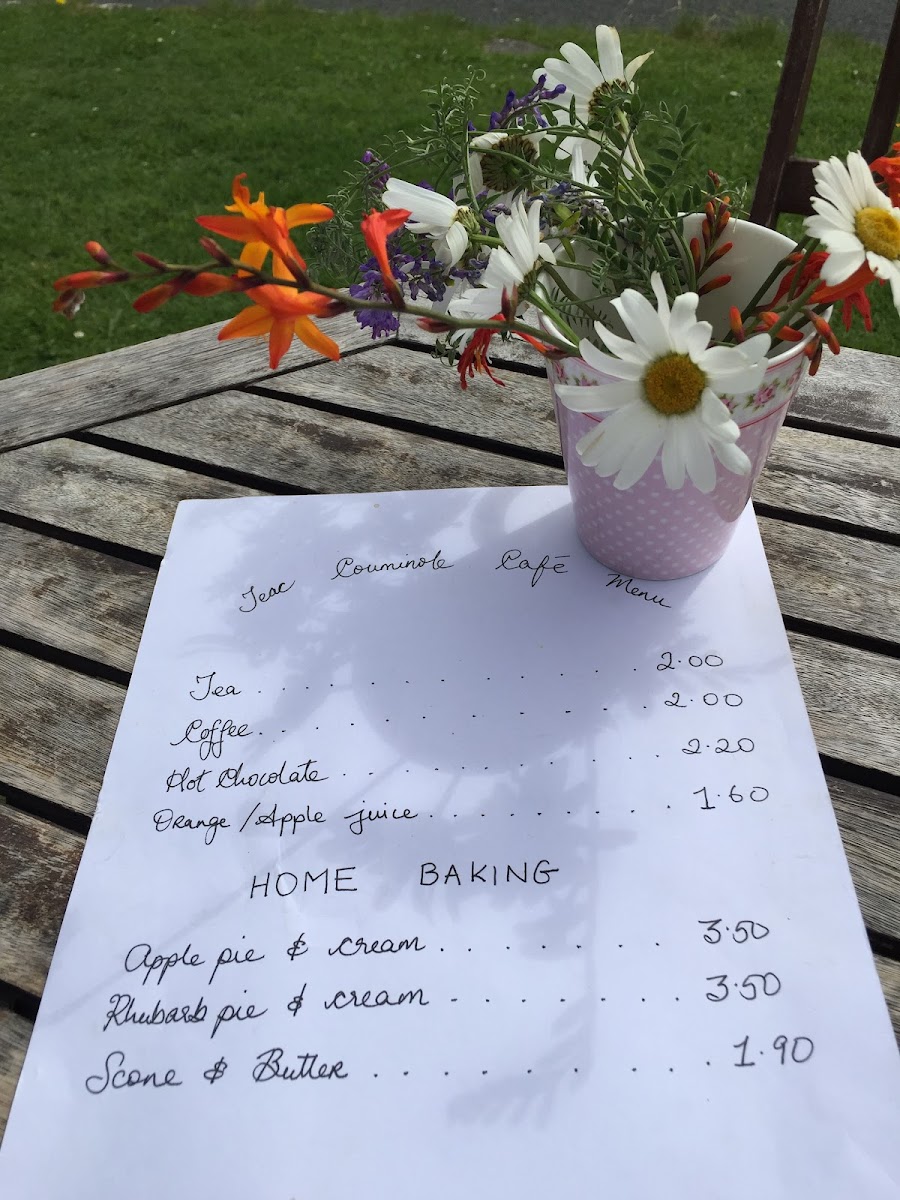 Teac Couminole Café Menu
Tea . . . . . . . . . . . . . 2.00
Coffee . . . . . . . . . . . . 2.00
Hot Chocolate . . . . . . . . . . 2.20
Orange/Apple juice . . . . . . . . . 1.60
HOME BAKING
Apple pie & cream . . . . . . . 3.50
Rhubarb pie & cream . . . . . . . 3.50
Scone & Butter . . . . . . . . . 1.90